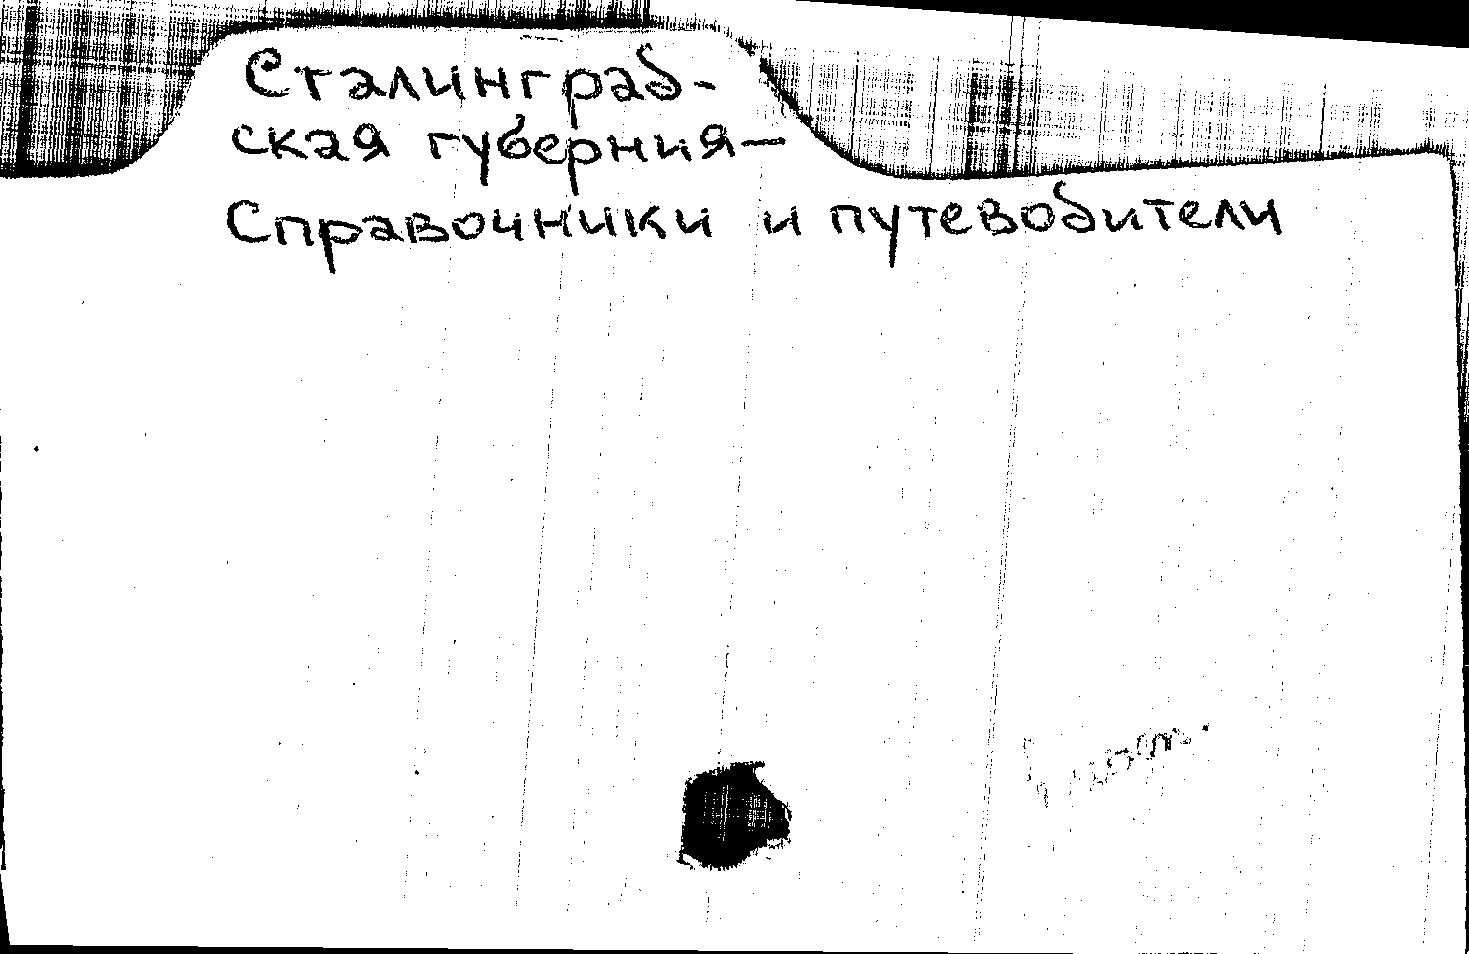 Сталинград-
ская губерния—
Справочники и путеводители